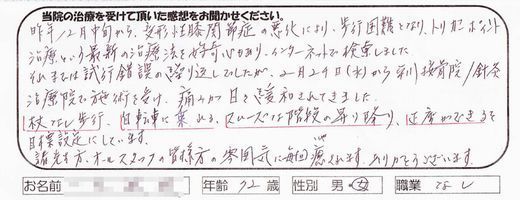 当院の治療を受けて頂いた感想をお聞かせください。
昨年12月中旬から、変形性膝関節症の悪化により、歩行困難となり、トリガーポイント
治療という最新の治療法を インターネットで検索しました
それまでは試行錯誤の繰り返しでしたが、2月29日(水)から 接骨院/針灸
治療院で施術を受け、痛みが日々緩和されてきました。
杖なし歩行、自転車に乗れる、スムーズな階段の昇り降り、正座ができるを
目標設定にしています。
諸先生方、オールスタッフの皆様方の雰囲気に毎回癒されます。ありがとうございます。
お名前 年齢 72歳 性別 男・女 職業 なし